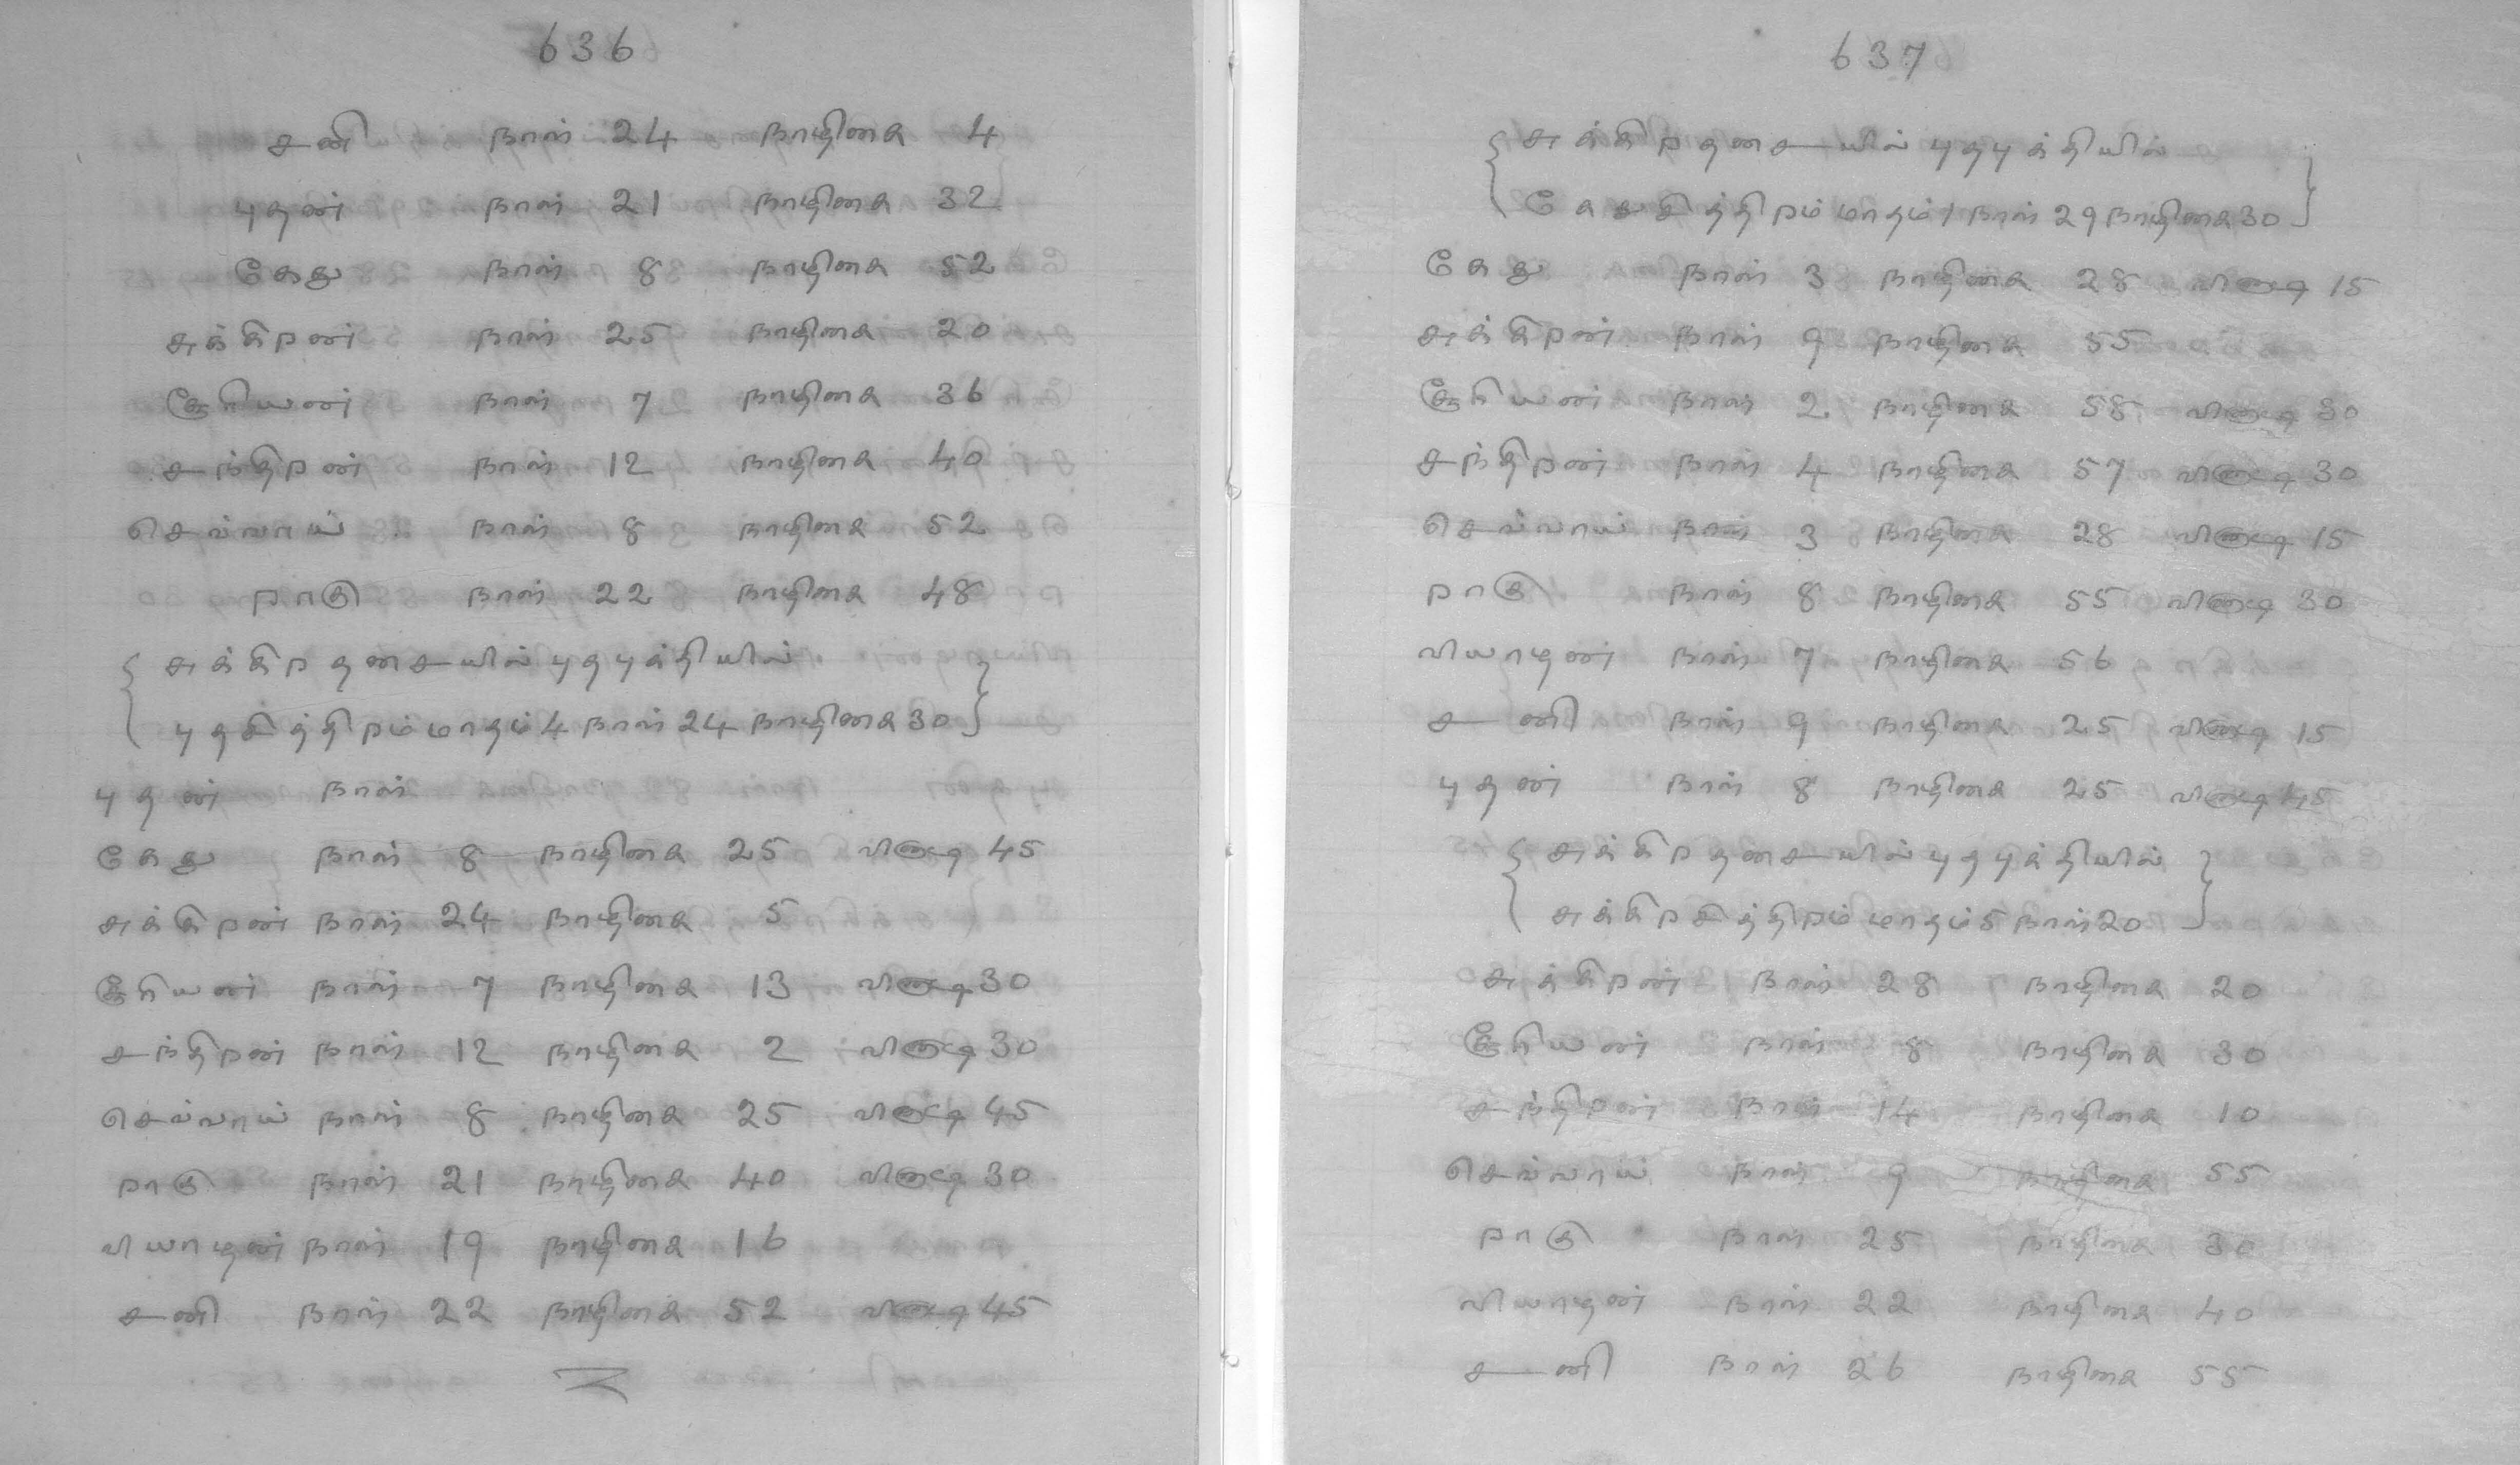 636
சனி நாள் 24 நாழிகை 4
புதன் நாள் 21 நாழிகை 32
கேது நாள் 8 நாழிகை 52
சுக்கிறன் நாள் 25 நாழிகை 20
சூரியன் நாள் 7 நாழிகை 36
சந்திறன் நாள் 12 நாழிகை 40
செவ்வாய் நாள் 8 நாழிகை 52
றாகு நாள் 22 நாழிகை 48
சுக்கிற தசையில் புதபுக்தியில்
புதசித்திறம் மாதம் 4 நாள் 24 நாழிகை 30
புதன் நாள்
கேது நாள் 8 நாழிகை 25 வினாடி 45
சுக்கிறன் நாள் 24 நாழிகை 5
சூரியன் நாள் 7 நாழிகை 13 வினாடி 30
சந்திறன் நாள் 12 நாழிகை 2 வினாடி 30
செவ்வாய் நாள் 8 நாழிகை 25 வினாடி 45
றாகு நாள் 21 நாழிகை 40 வினாடி 30
வியாழன் நாள் 19 நாழிகை 16
சனி நாள் 22 நாழிகை 52 வினாடி 45
637
சுக்கிற தசையில் புதபுக்தியில்
கேதுசித்திறம் மாதம் 1 நாள் 29 நாழிகை 30
கேது நாள் 3 நாழிகை 28 வினாடி 15
சுக்கிறன் நாள் 9 நாழிகை 55
சூரியன் நாள் 2 நாழிகை 58 வினாடி 30
சந்திறன் நாள் 4 நாழிகை 57 வினாடி 30
செவ்வாய் நாள் 3 நாழிகை 28 வினாடி 15
றாகு நாள் 8 நாழிகை 55 வினாடி 30
வியாழன் நாள் 7 நாழிகை 56
சனி நாள் 9 நாழிகை 25 வினாடி 15
புதன் நாள் 8 நாழிகை 25 வினாடி 45
சுக்கிற தசையில் புதபுக்தியில்
சுக்கிறசித்திறம் மாதம் 5 நாள் 20
சுக்கிறன் நாள் 28 நாழிகை 20
சூரியன் நாள் 8 நாழிகை 30
சந்திறன் நாள் 14 நாழிகை 10
செவ்வாய் நாள் 9 நாழிகை 55
றாகு நாள் 25 நாழிகை 30
வியாழன் நாள் 22 நாழிகை 40
சனி நாள் 26 நாழிகை 55